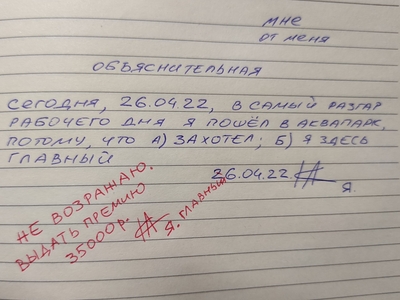 мне
от меня
ОБЪЯСНИТЕЛЬНАЯ
Сегодня, 26.04.22, в самый разгар
рабочего дня я пошёл в аквапарк,
потому, что а) захотел; б) я здесь
главный
26.04.22
Я.
НЕ ВОЗРАЖАЮ.
ВЫДАТЬ ПРЕМИЮ
35000р.
Я. ГЛАВНЫЙ